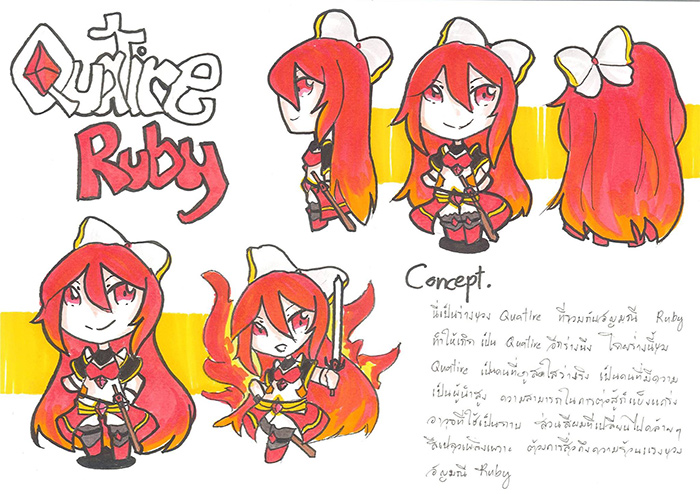 Quatire
Ruby
Concept.
นี่เป็นร่างของ Quatire ที่รวมกับอัญมณี Ruby
ทำให้เกิด เป็น Quatire อีกร่างนึง โดยร่างนี้ของ
Quatire เป็นคนที่ ร่างจริง เป็นคนที่มีความ
เป็นผู้นำสูง ความสามารถในการต่อสู้ก็แข็งแกร่ง
อาวุธที่ใช้เป็นดาบ ส่วนสีผมที่เปลี่ยนไปคล้ายๆ
สีเปลวเพลิงเพราะ ต้องการสื่อถึงความร้อนแรงของ
อัญมณี Ruby